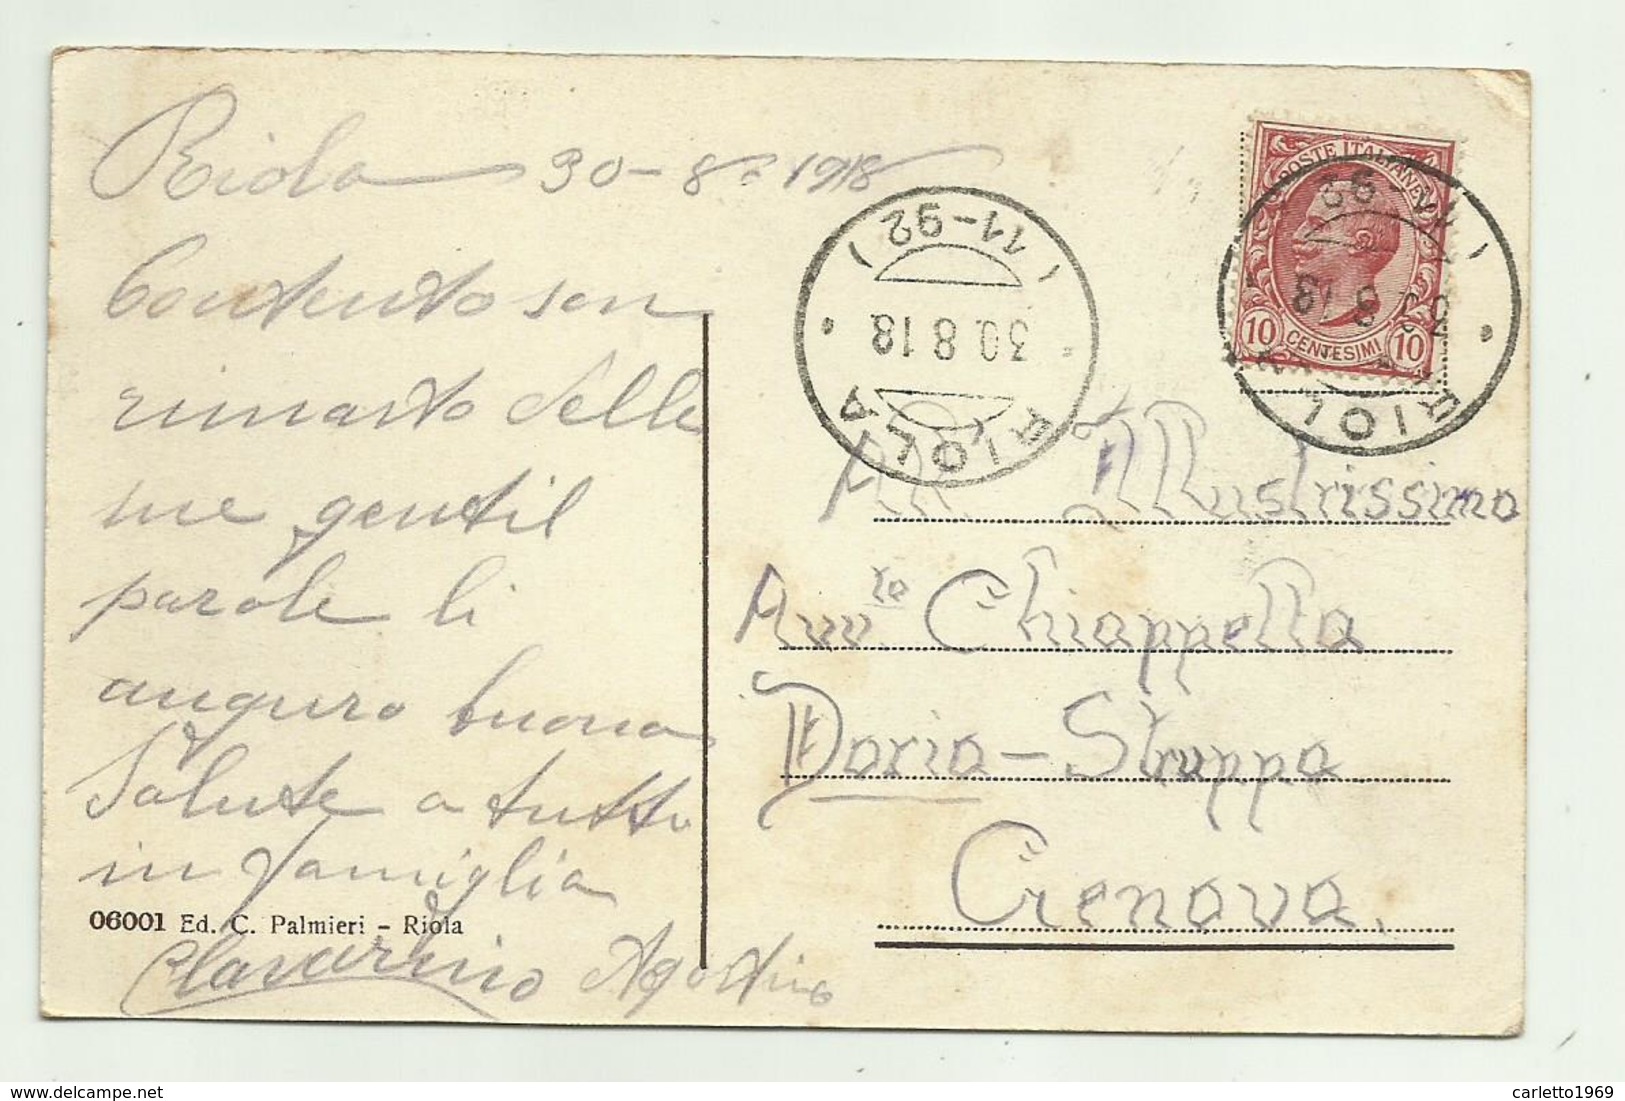 Riola 30-8-1918
Contento son
rimasto delle
sue gentil
parole li
auguro buona
Salute a tutti
in famiglia
06001 Ed. C. Palmieri - Riola
Agostino
11-92
30 8 18
RIOLA
POSTE ITALIANE
10 CENTESIMI 10
RIOLA
All' Illustrissimo
Avv.to Chiappella
Doria-Struppa
Genova.
carletto1969